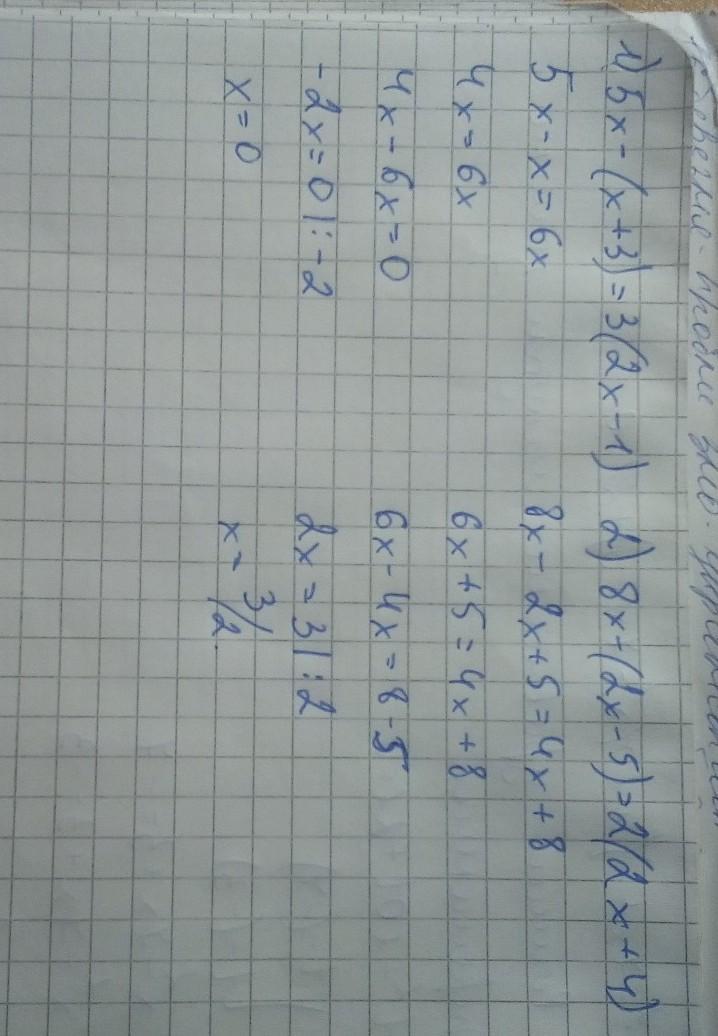 1) 5x - (x+3) = 3(2x-1)
5x - x = 6x
4x = 6x
4x - 6x = 0
-2x = 0 |: -2
x = 0
2) 8x - (2x-5) = 2(2x+4)
8x - 2x + 5 = 4x + 8
6x + 5 = 4x + 8
6x - 4x = 8 - 5
2x = 3 | : 2
x = 3/2